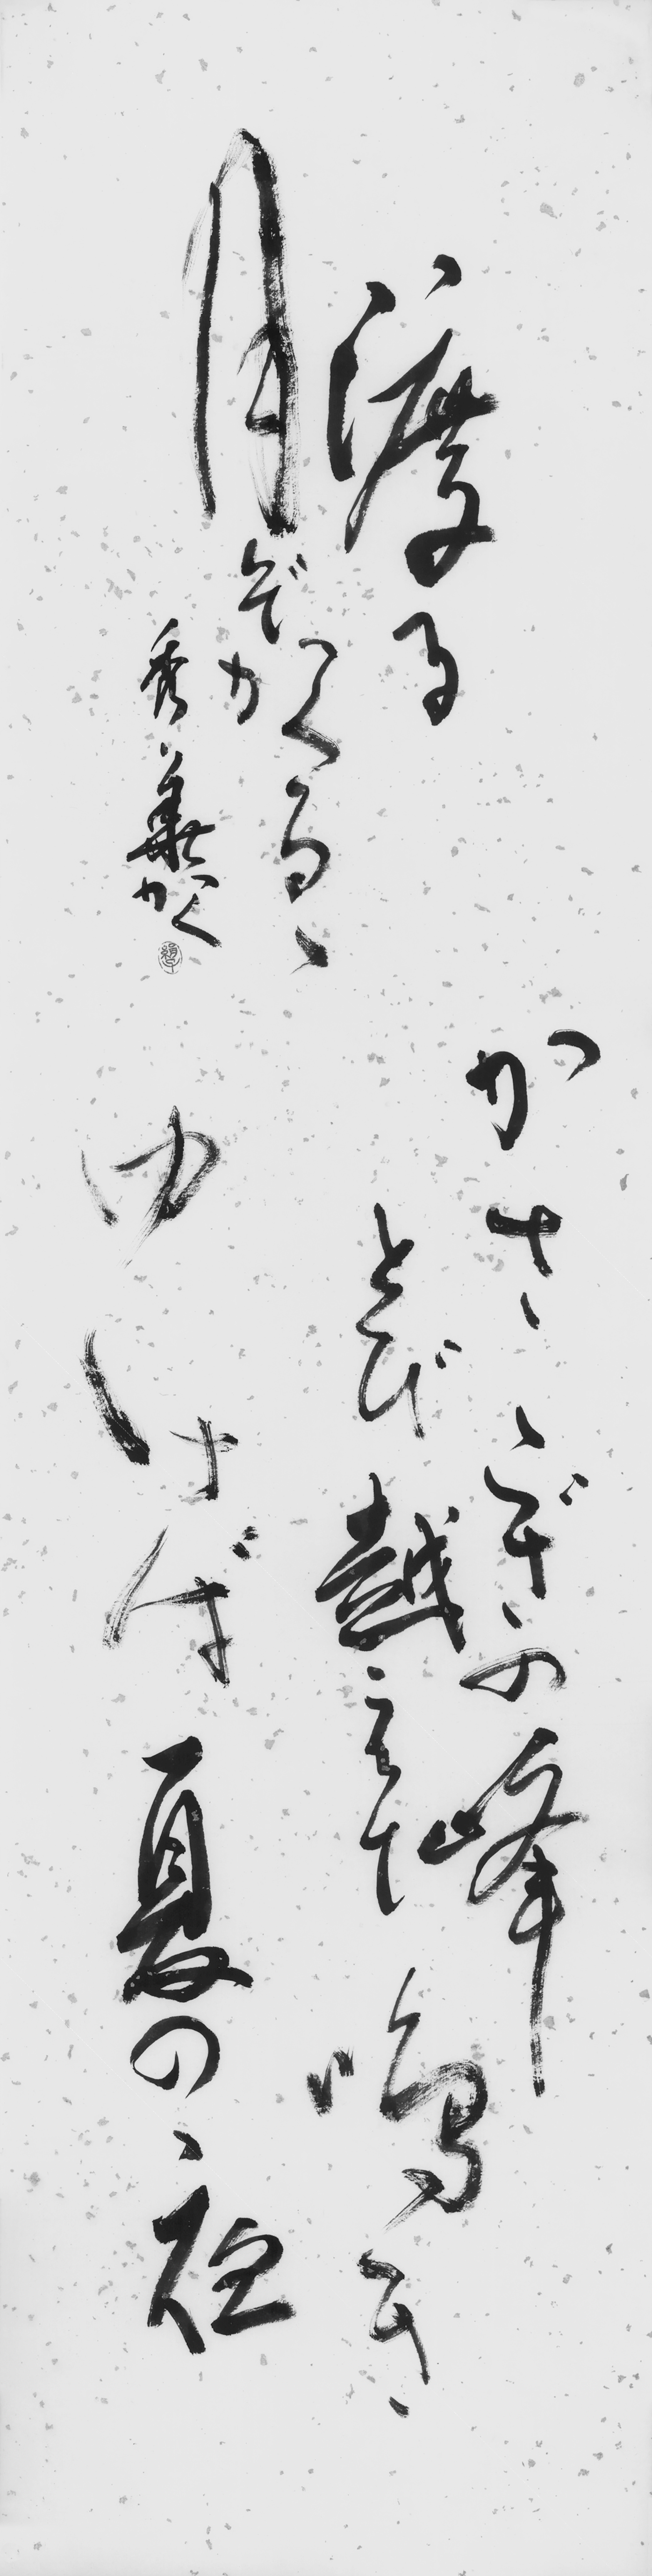 かさゝぎの峰
とび越えて鳴き
ゆけば夏の夜
渡る
月ぞかくるゝ
秀華かく